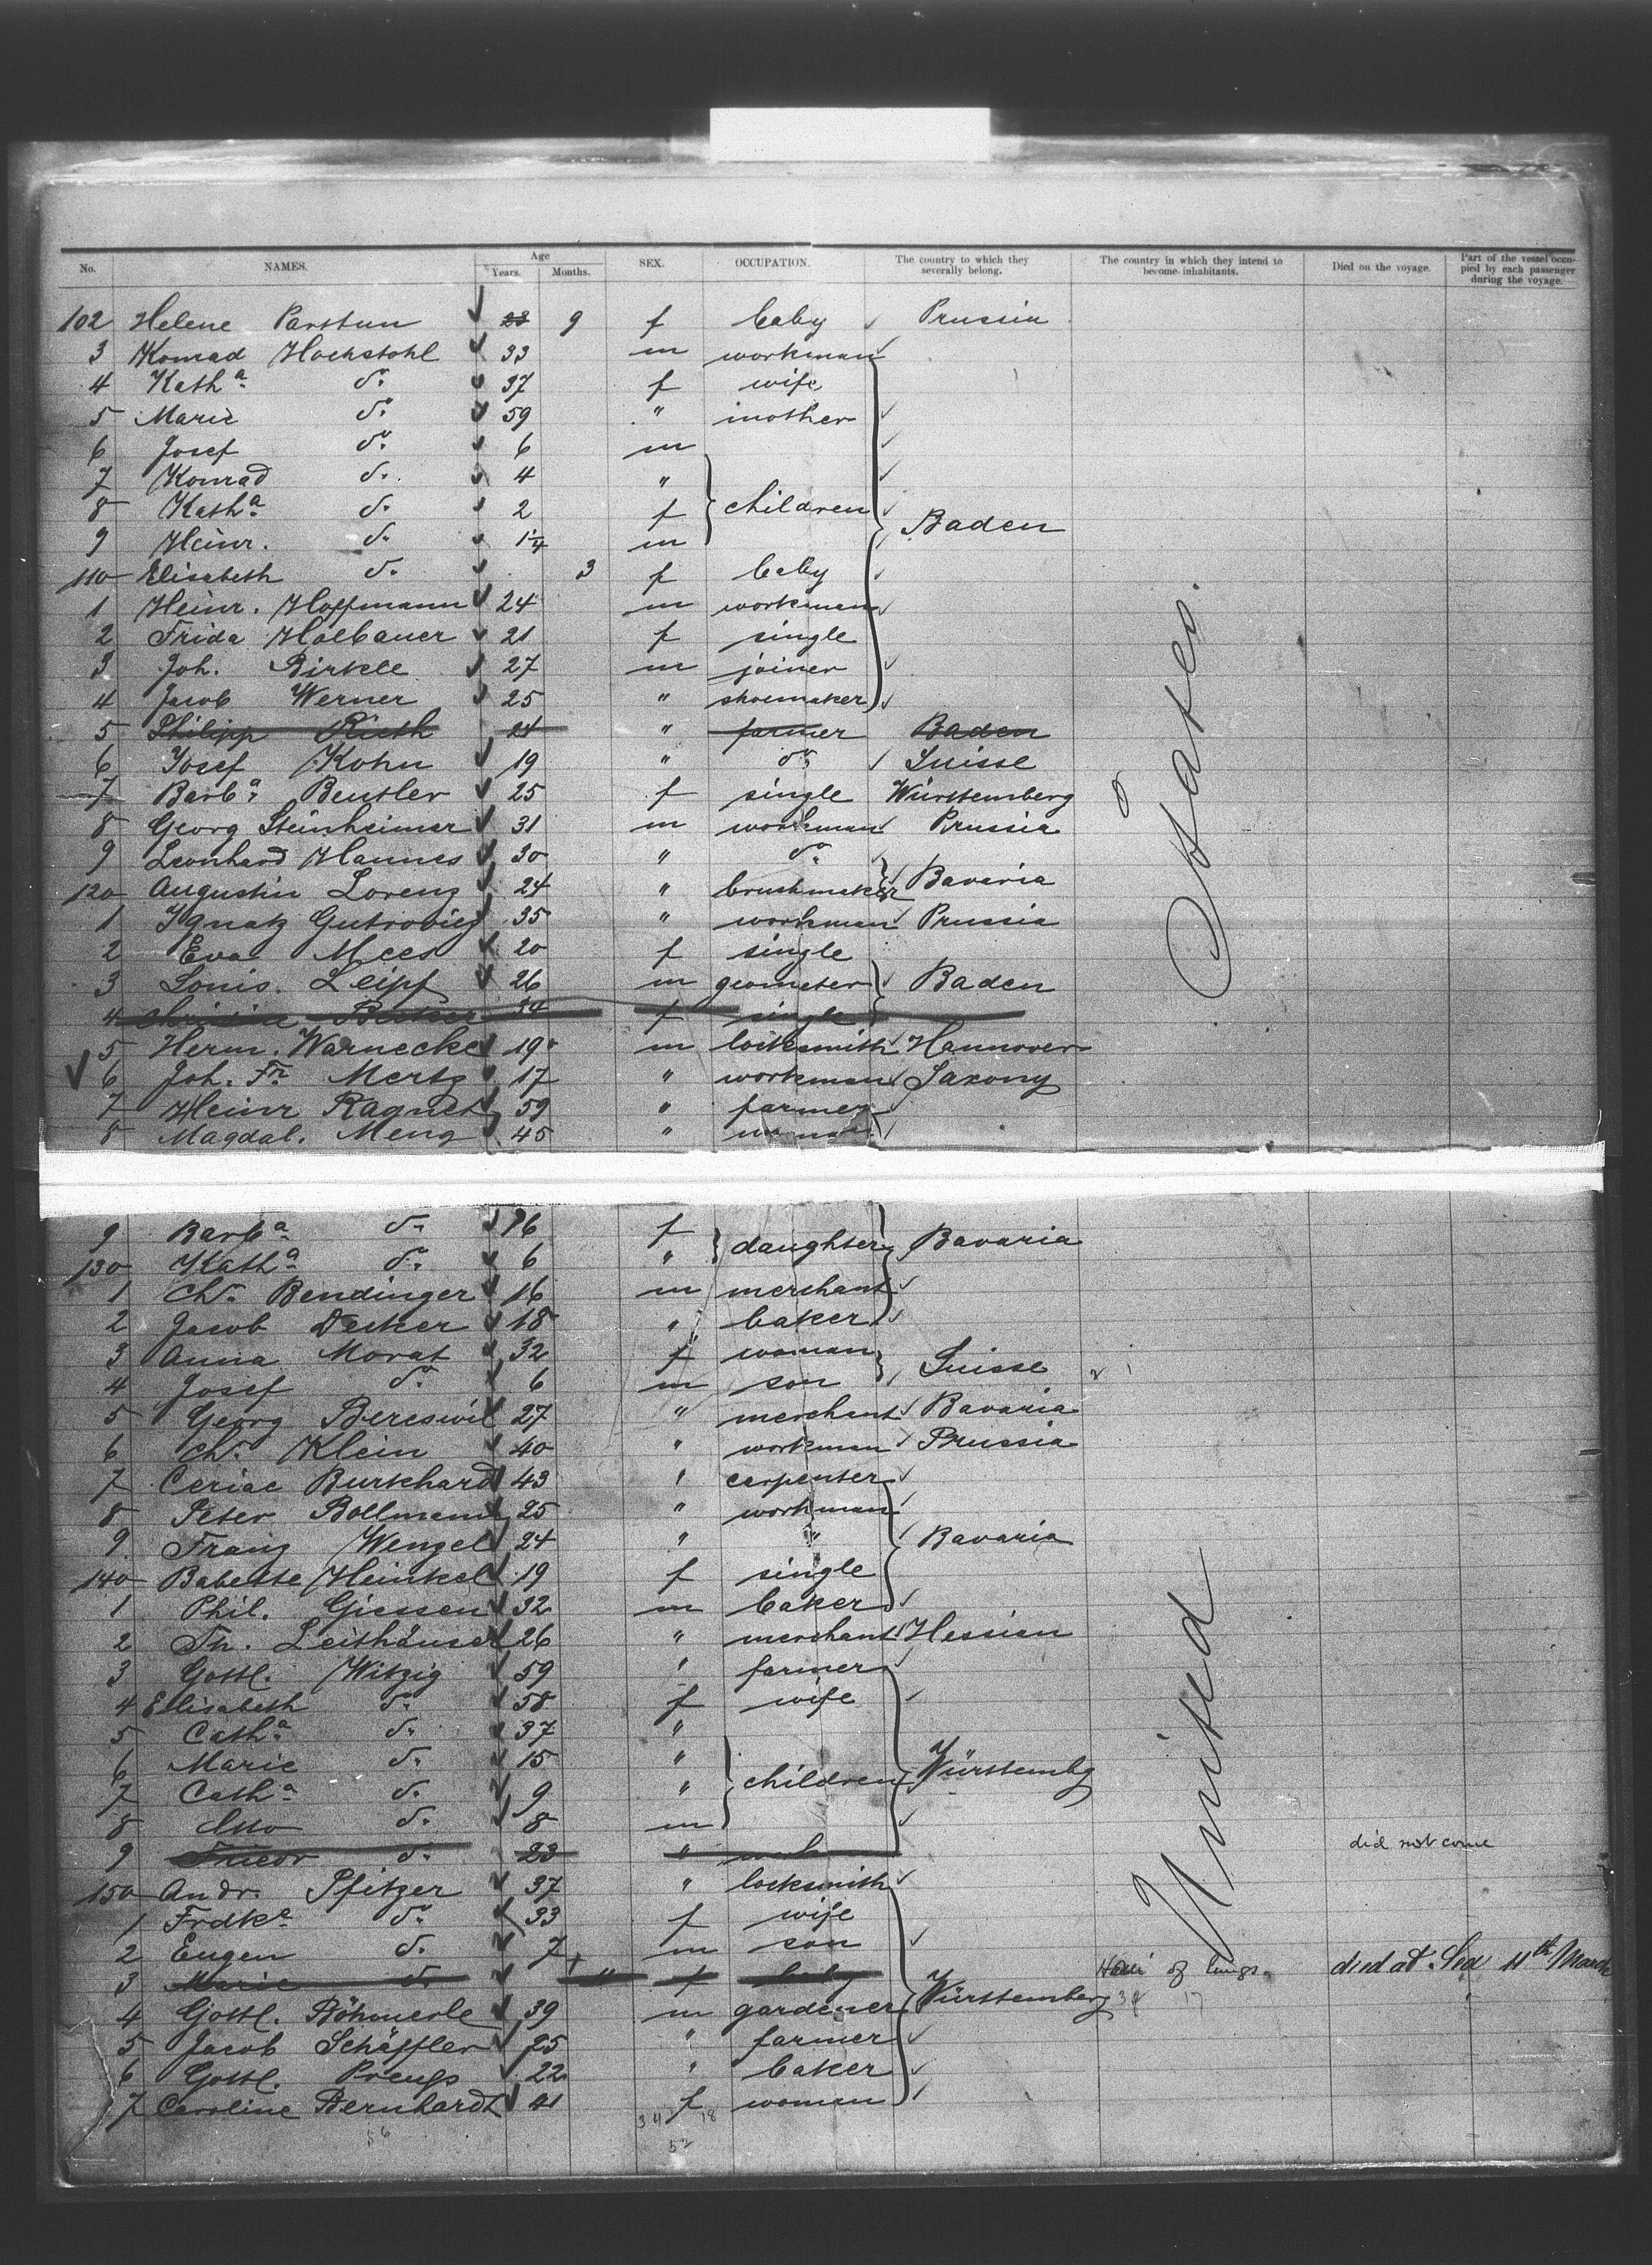 No. NAMES. Age Years. Months. SEX. OCCUPATION. The country to which they severally belong. The country in which they intend to become inhabitants. Died on the voyage. Part of the vessel occupied by each passenger during the voyage.
102 Helene Parstun 23 9 f baby Prussia
3 Konrad Hochstohl 33 m workman
4 Kath.a do. 37 f wife
5 Marie do. 59 " mother
6 Josef do. 6 m
7 Konrad do. 4 "
8 Kath.a do. 2 f children
9 Heinr. do. 1¼ m Baden
110 Elisabeth do. 3 f baby
1 Heinr. Hoffmann 24 m workman
2 Frida Holbauer 21 f single
3 Joh. Birkle 27 m joiner
4 Jacob Werner 25 " shoemaker
5 Philipp Rieth 24 " farmer Baden
6 Josef Kohn 19 " do. Suisse
7 Barb.a Beutler 25 f single Württemberg
8 Georg Steinheimer 31 m workman Prussia
9 Leonhard Hannes 30 " do.
120 Augustin Lorenz 24 " brushmaker Bavaria
1 Ignatz Gutrovicz 35 " workman Prussia
2 Eva Mees 20 f single
3 Louis. Leipf 26 m geometer Baden
4 34 f single
5 Herm. Warnecke 19 m locksmith Hannover
6 Joh. Fr. Mertz 17 " workman Saxony
7 Heinr Ragnet 59 " farmer
8 Magdal. Meng 45 "
9 Barb.a do. 16 f
130 Kath.a do. 6 " daughter Bavaria
1 Chr. Bendinger 16 m merchant
2 Jacob Decker 18 " baker
3 Anna Morat 32 f woman
4 Josef do. 6 m son Suisse
5 Georg Bereswil 27 " merchant Bavaria
6 Chr. Klein 40 " workman Prussia
7 Ceriac Burkhard 43 " carpenter
8 Peter Bollmann 25 " workman
9 Franz Wenzel 24 " " Bavaria
140 Babette Heinkel 19 f single
1 Phil. Giessen 32 m baker
2 Th. Leithäuser 26 " merchant Hessien
3 Gottl. Witzig 59 " farmer
4 Elisabeth do. 58 f wife
5 Cath.a do. 37 "
6 Marie do. 15 "
7 Cath.a do. 9 " children Württembg
8 Otto do. 8 m
9 Friedr do. 23 " did not come
150 Andr. Pfitzer 37 " locksmith
1 Frdke. do. 33 f wife
2 Eugen do. 7 m son
3 Marie do. 11 f baby of lungs. died at Sea 11th March
4 Gottl. Böhmerle 39 m gardener Württemberg
5 Jacob Schäffler 25 " farmer
6 Gottl. Preuss 22 " baker
7 Caroline Bernhardt 21 f woman
United States.